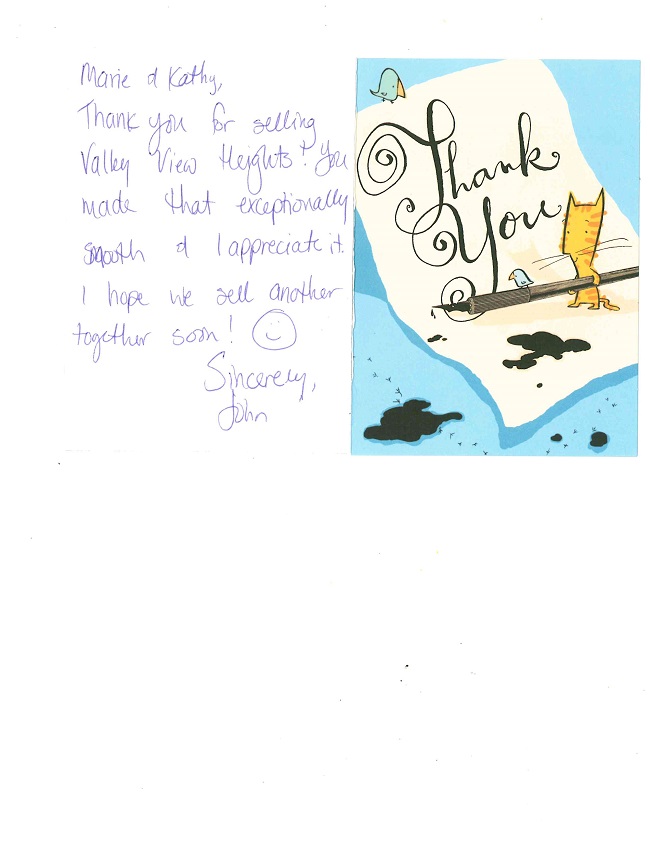 Marie & Kathy,
Thank you for selling
Valley View Heights! You
made that exceptionally
smooth & I appreciate it.
I hope we sell another
together soon!
Sincerely,
John
Thank
You